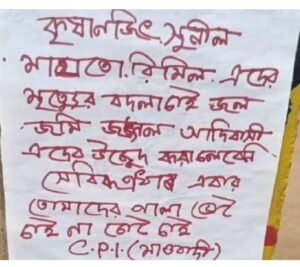 কৃষানজিৎ, সুনীল
মাহাতো. রিমিল. এদের
মৃত্যুর বদলা চাই জল
জমি জঙ্গল আদিবাসী
এদের উচ্ছেদ করা চলবেনা
এবার
তোমাদের লাল ভোট
চাই না ভোট চাই
C.P.I. (মাওবাদী)